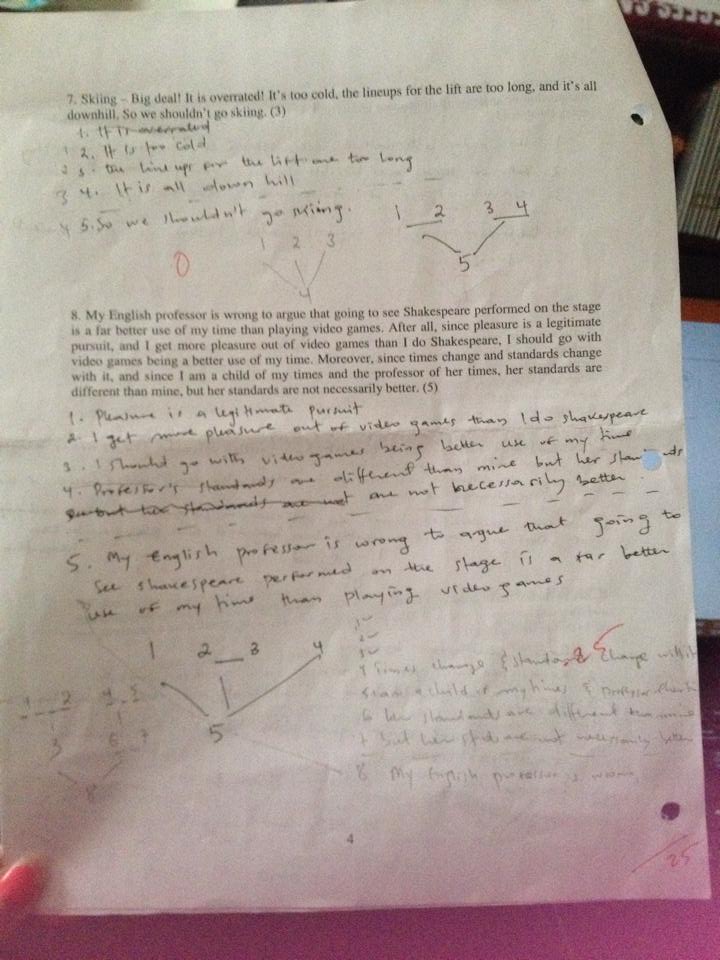 7. Skiing – Big deal! It is overrated! It's too cold, the lineups for the lift are too long, and it's all
downhill. So we shouldn't go skiing. (3)
1. It is overrated
1 2. It is too cold
2 3. the line ups for the lift are too long
3 4. It is all down hill
4 5. So we shouldn't go skiing.
1 2 3 4
5
1 2 3
4
0
8. My English professor is wrong to argue that going to see Shakespeare performed on the stage
is a far better use of my time than playing video games. After all, since pleasure is a legitimate
pursuit, and I get more pleasure out of video games than I do Shakespeare, I should go with
video games being a better use of my time. Moreover, since times change and standards change
with it, and since I am a child of my times and the professor of her times, her standards are
different than mine, but her standards are not necessarily better. (5)
1. Pleasure is a legitimate pursuit
2. I get more pleasure out of video games than I do shakespeare
3. I should go with video games being better use of my time
4. Professor's standards are different than mine but her standards
are not necessarily better
5. My English professor is wrong to argue that going to
see shakespeare performed on the stage is a far better
use of my time than playing video games
1 2 3 4
5
1
2
3
4 times change & standards change with it
5 I am a child of my times & professor
6 her standards are different than mine
7 but her are not necessarily better
8 My English professor is wrong
1 2 4 5
3 6 7
8
4
/25